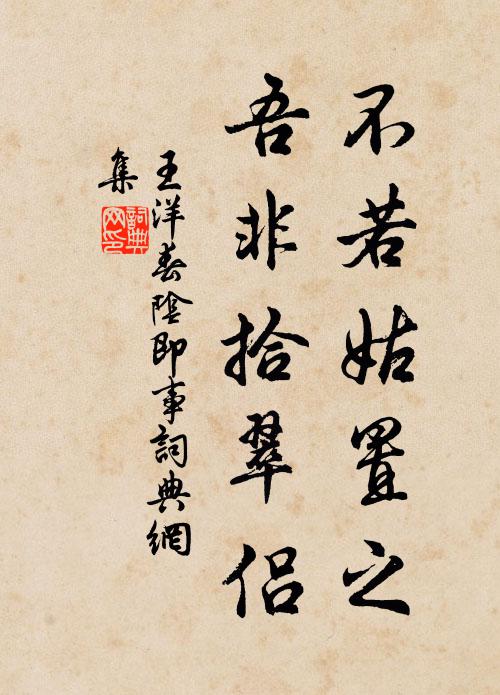 不若姑置之
吾非拾翠侶
王洋春陰即事詞典網
集
詞典網印